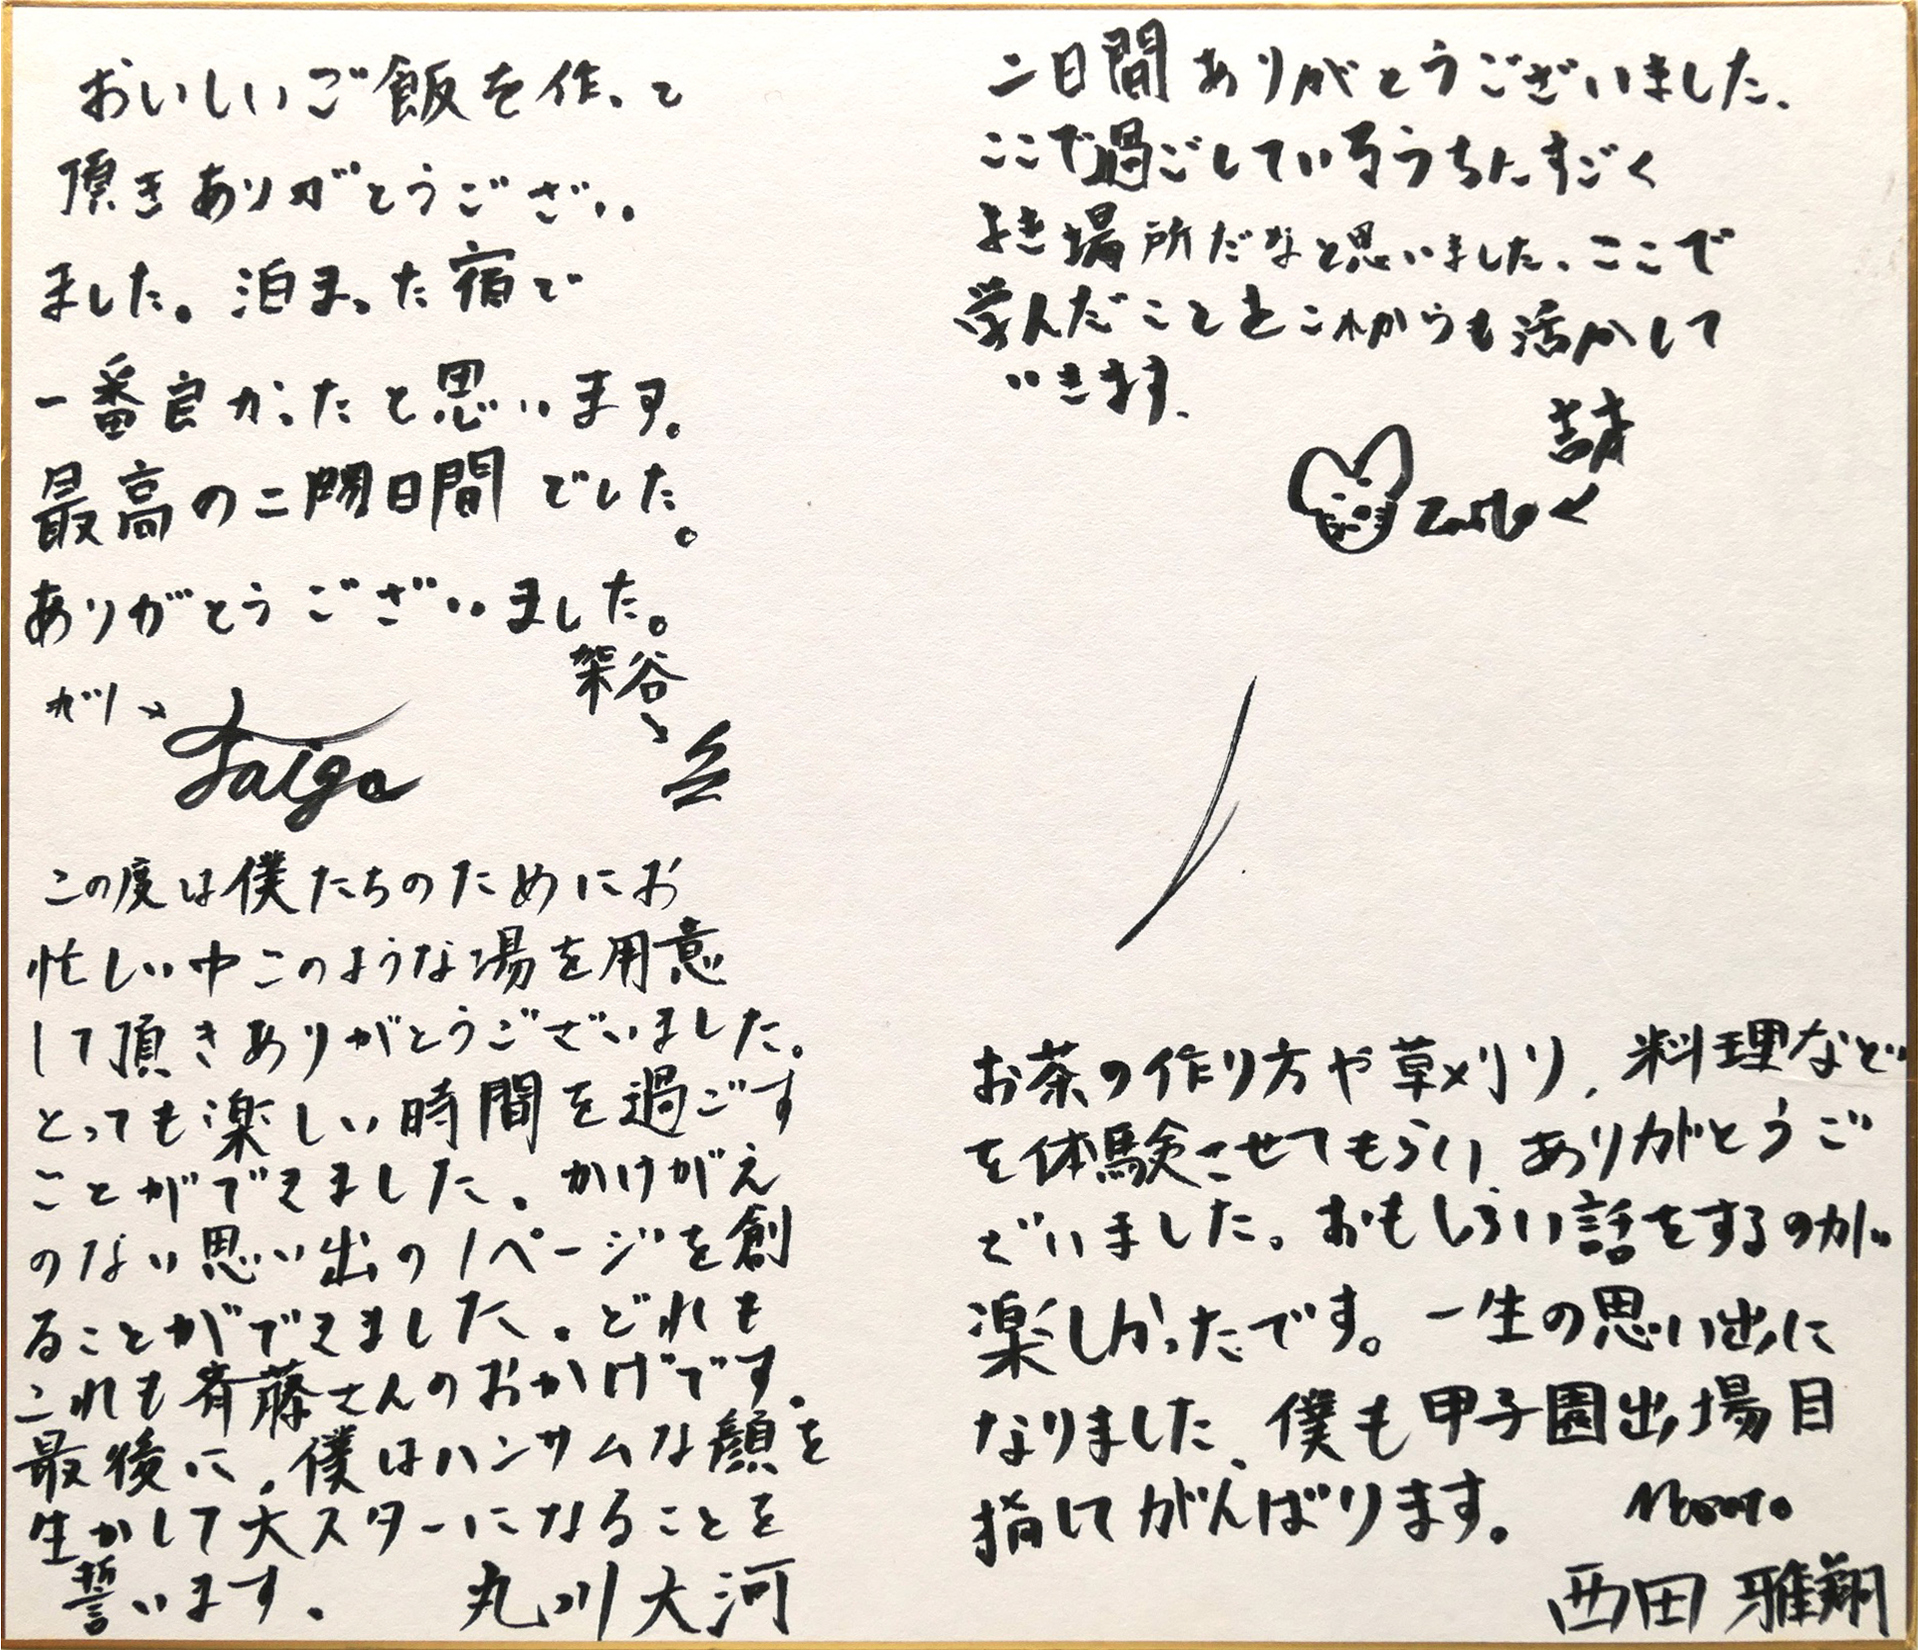 おいしいご飯を作って
頂きありがとうござい
ました。泊まった宿で
一番良かったと思います。
最高の二日間でした。
ありがとうございました。
架谷
ガリ
Taiga
この度は僕たちのためにお
忙しい中このような場を用意
して頂きありがとうございました。
とっても楽しい時間を過ごす
ことができました。かけがえ
のない思い出の1ページを創
ることができました。どれも
これも斉藤さんのおかげです。
最後に、僕はハンサムな顔を
生かして大スターになることを
誓います。 丸川大河
二日間ありがとうございました、
ここで過ごしているうちにすごく
よき場所だなと思いました、ここで
学んだことをこれからも活かして
いきます、
お茶の作り方や草刈り、料理など
を体験させてもらい、ありがとうご
ざいました。おもしろい話をするのが
楽しかったです。一生の思い出に
なりました、僕も甲子園出場目
指してがんばります。
西田 雅翔